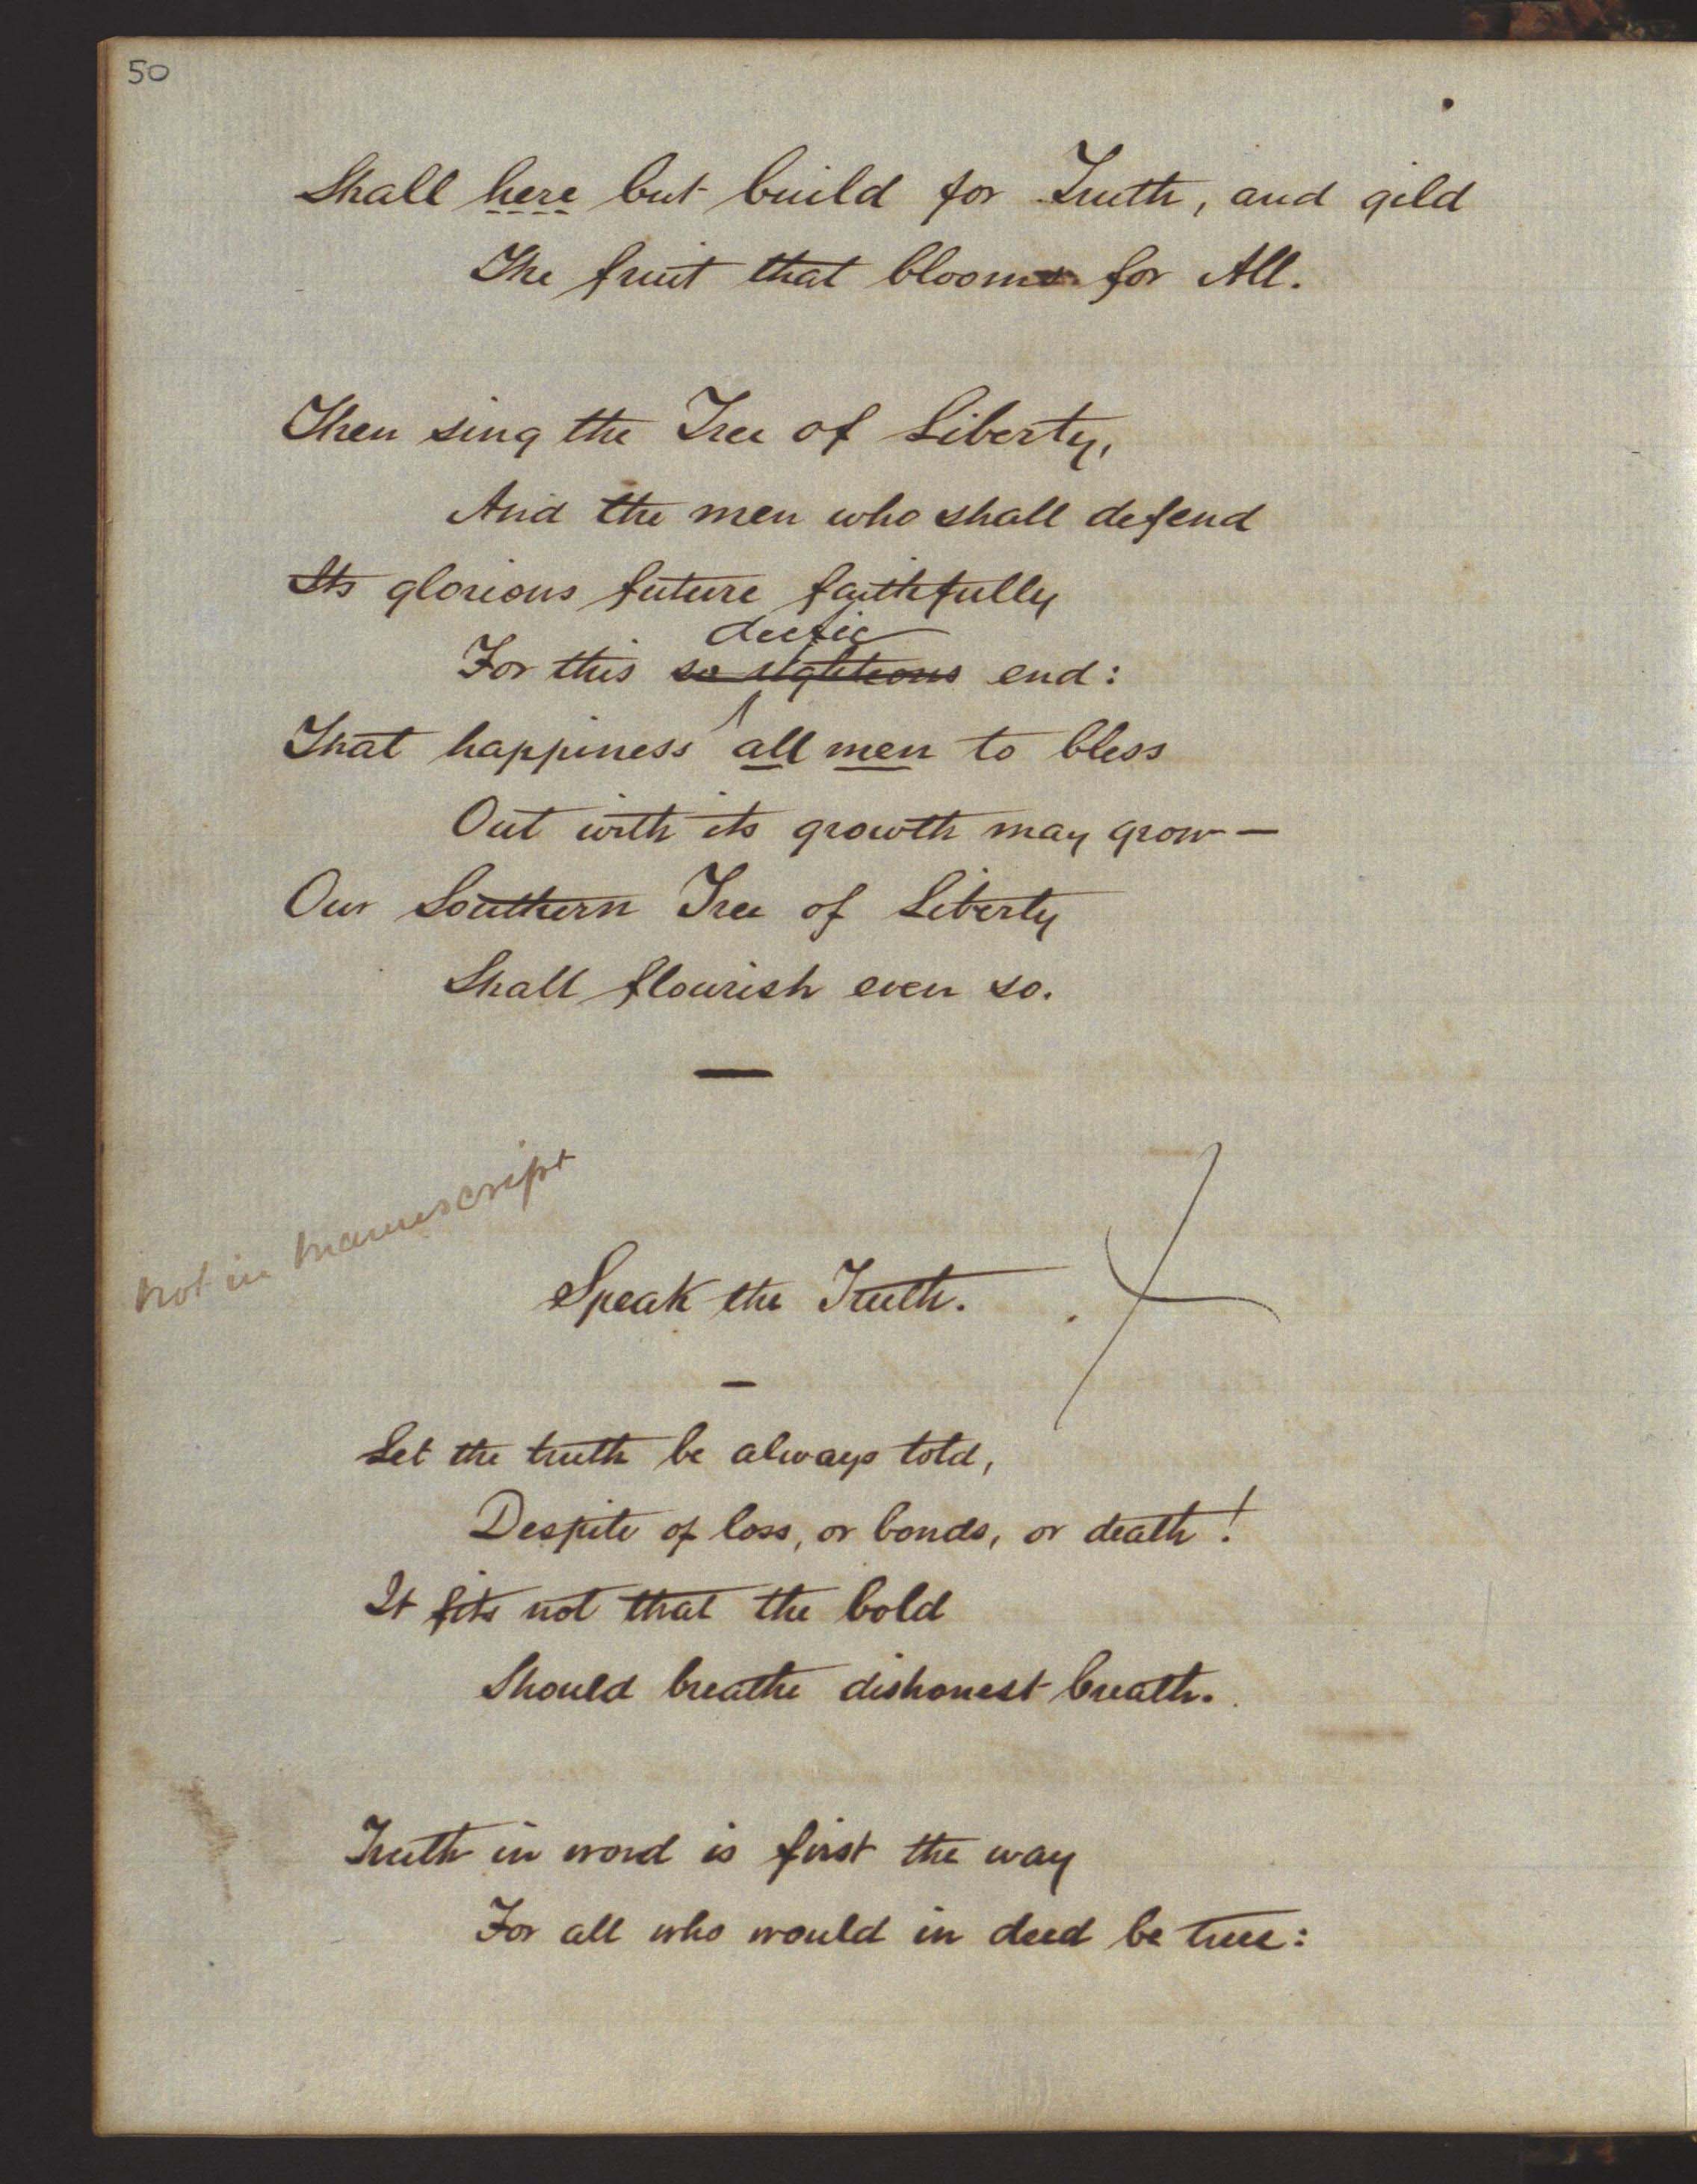 50
Shall here but build for Truth, and gild
The fruit that blooms for All.
Then sing the Tree of Liberty,
And the men who shall defend
Its glorious future faithfully
deific
For this so righteous end:
That happiness all men to bless
Out with its growth may grow —
Our Southern Tree of Liberty
Shall flourish even so.
Not in manuscript
Speak the Truth.
Let the truth be always told,
Despite of loss, or bonds, or death!
It fits not that the bold
Should breathe dishonest breath.
Truth in word is first the way
For all who would in deed be true: